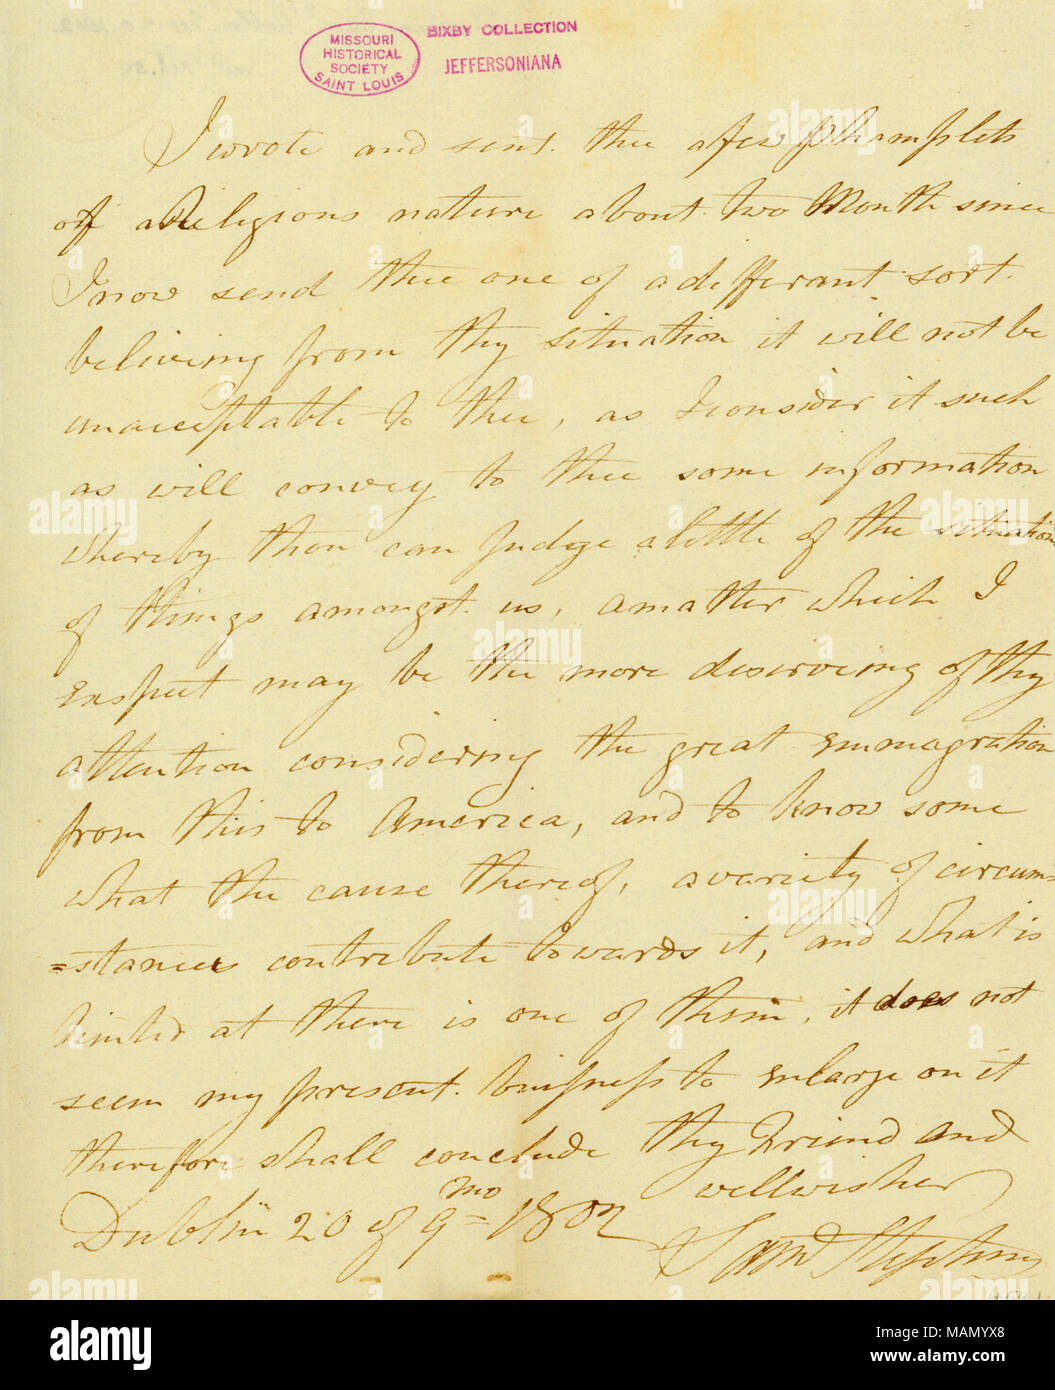 MISSOURI
HISTORICAL
SOCIETY
SAINT LOUIS
BIXBY COLLECTION
JEFFERSONIANA
I wrote and sent thee a few Phamplets
of a Religious nature about two Month since
I now send thee one of a differant sort.
beliving from thy situation it will not be
unacceptable to thee, as I consider it such
as will convey to thee some information
whereby thou can Judge a little of the situation
of things amongst us, a matter which I
Exspect may be the more deserveing of thy
attention considering the great Emmagration
from this to America, and to know some
what the cause thereof, a variety of circum=
=stances contribute towards it, and what is
hinted at there is one of them, it does not
seem my present buisness to Enlarge on it
therefore shall conclude thy Friend and
wellwisher
Dublin 20 of 9mo 1802
Saml Stephens
alamy
alamy stock photo
Image ID: MAMYX8
www.alamy.com